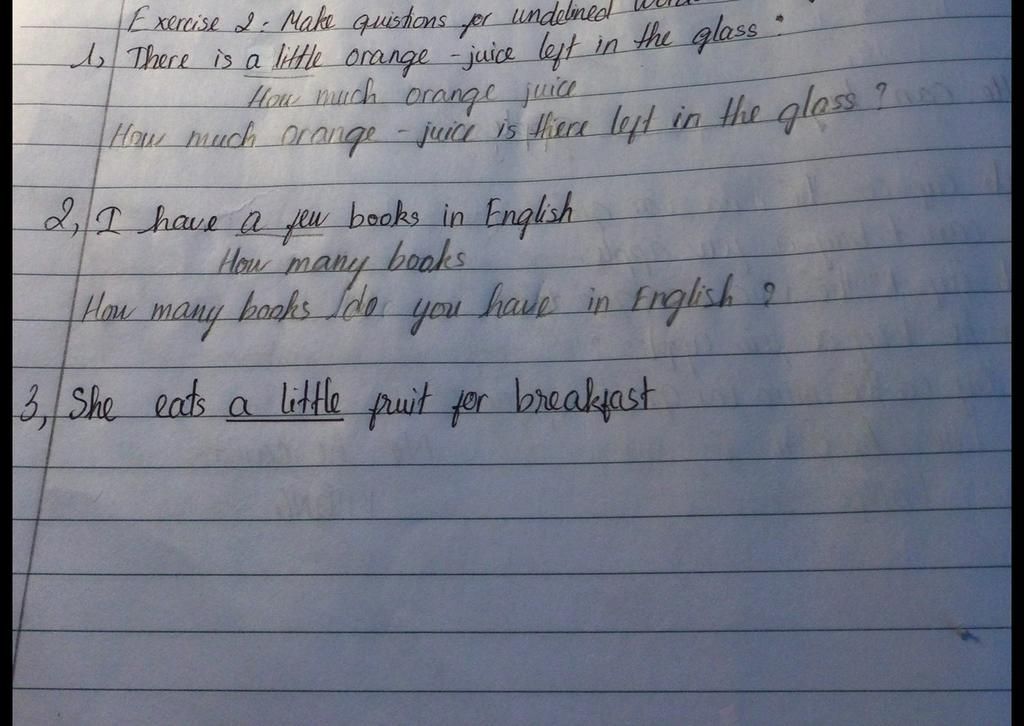 Exercise 2 : Make quistions for undelined
1, There is a little orange - juice left in the glass :
How much orange juice
How much orange - juice is there left in the glass ?
2, I have a few books in English
How many books
How many books do you have in English ?
3, She eats a little fruit for breakfast